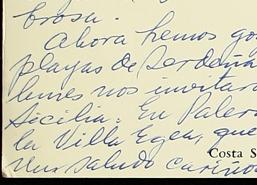 brosa.
Ahora hemos go
playas de Serdeña
lunes nos invitaro
Sicilia. En Paler
la Villa Egea, que
Costa S
un saludo cariños